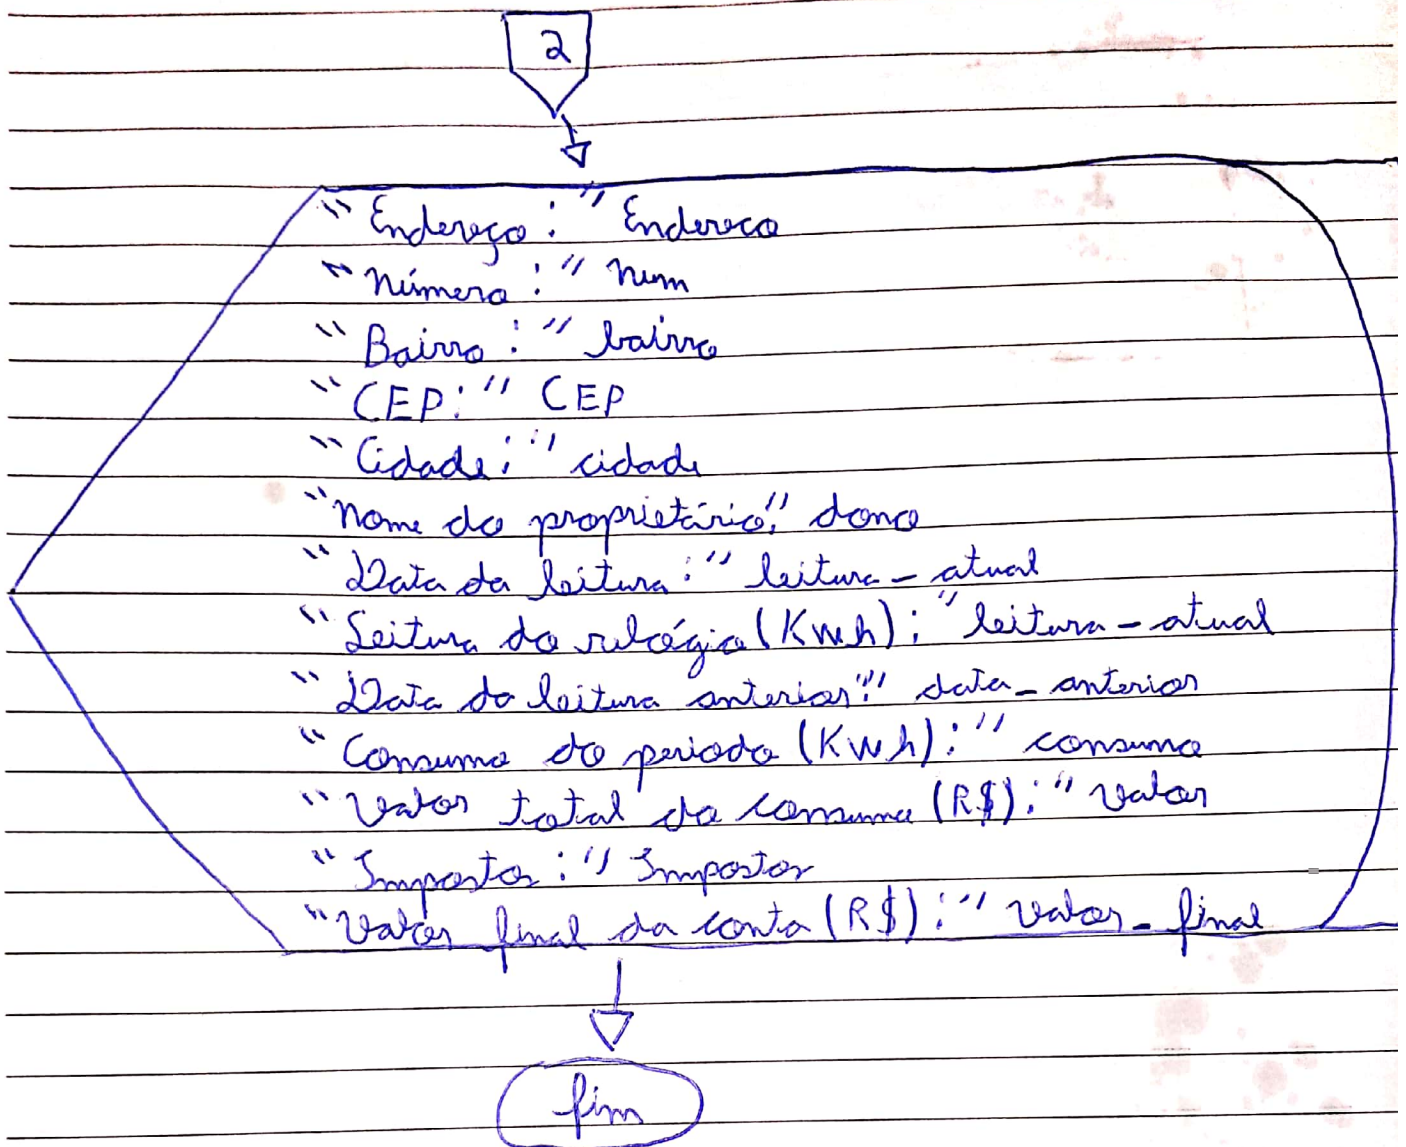 2
"Endereço:" Endereco
"Número:" num
"Bairro:" bairro
"CEP:" CEP
"Cidade:" cidade
"Nome do proprietário:" dono
"Data da leitura:" leitura_atual
"Leitura do relógio (Kwh):" leitura_atual
"Data da leitura anterior:" data_anterior
"Consumo do periodo (Kwh):" consumo
"Valor total do consumo (R$):" valor
"Impostos:" Impostos
"Valor final da conta (R$):" valor_final
fim